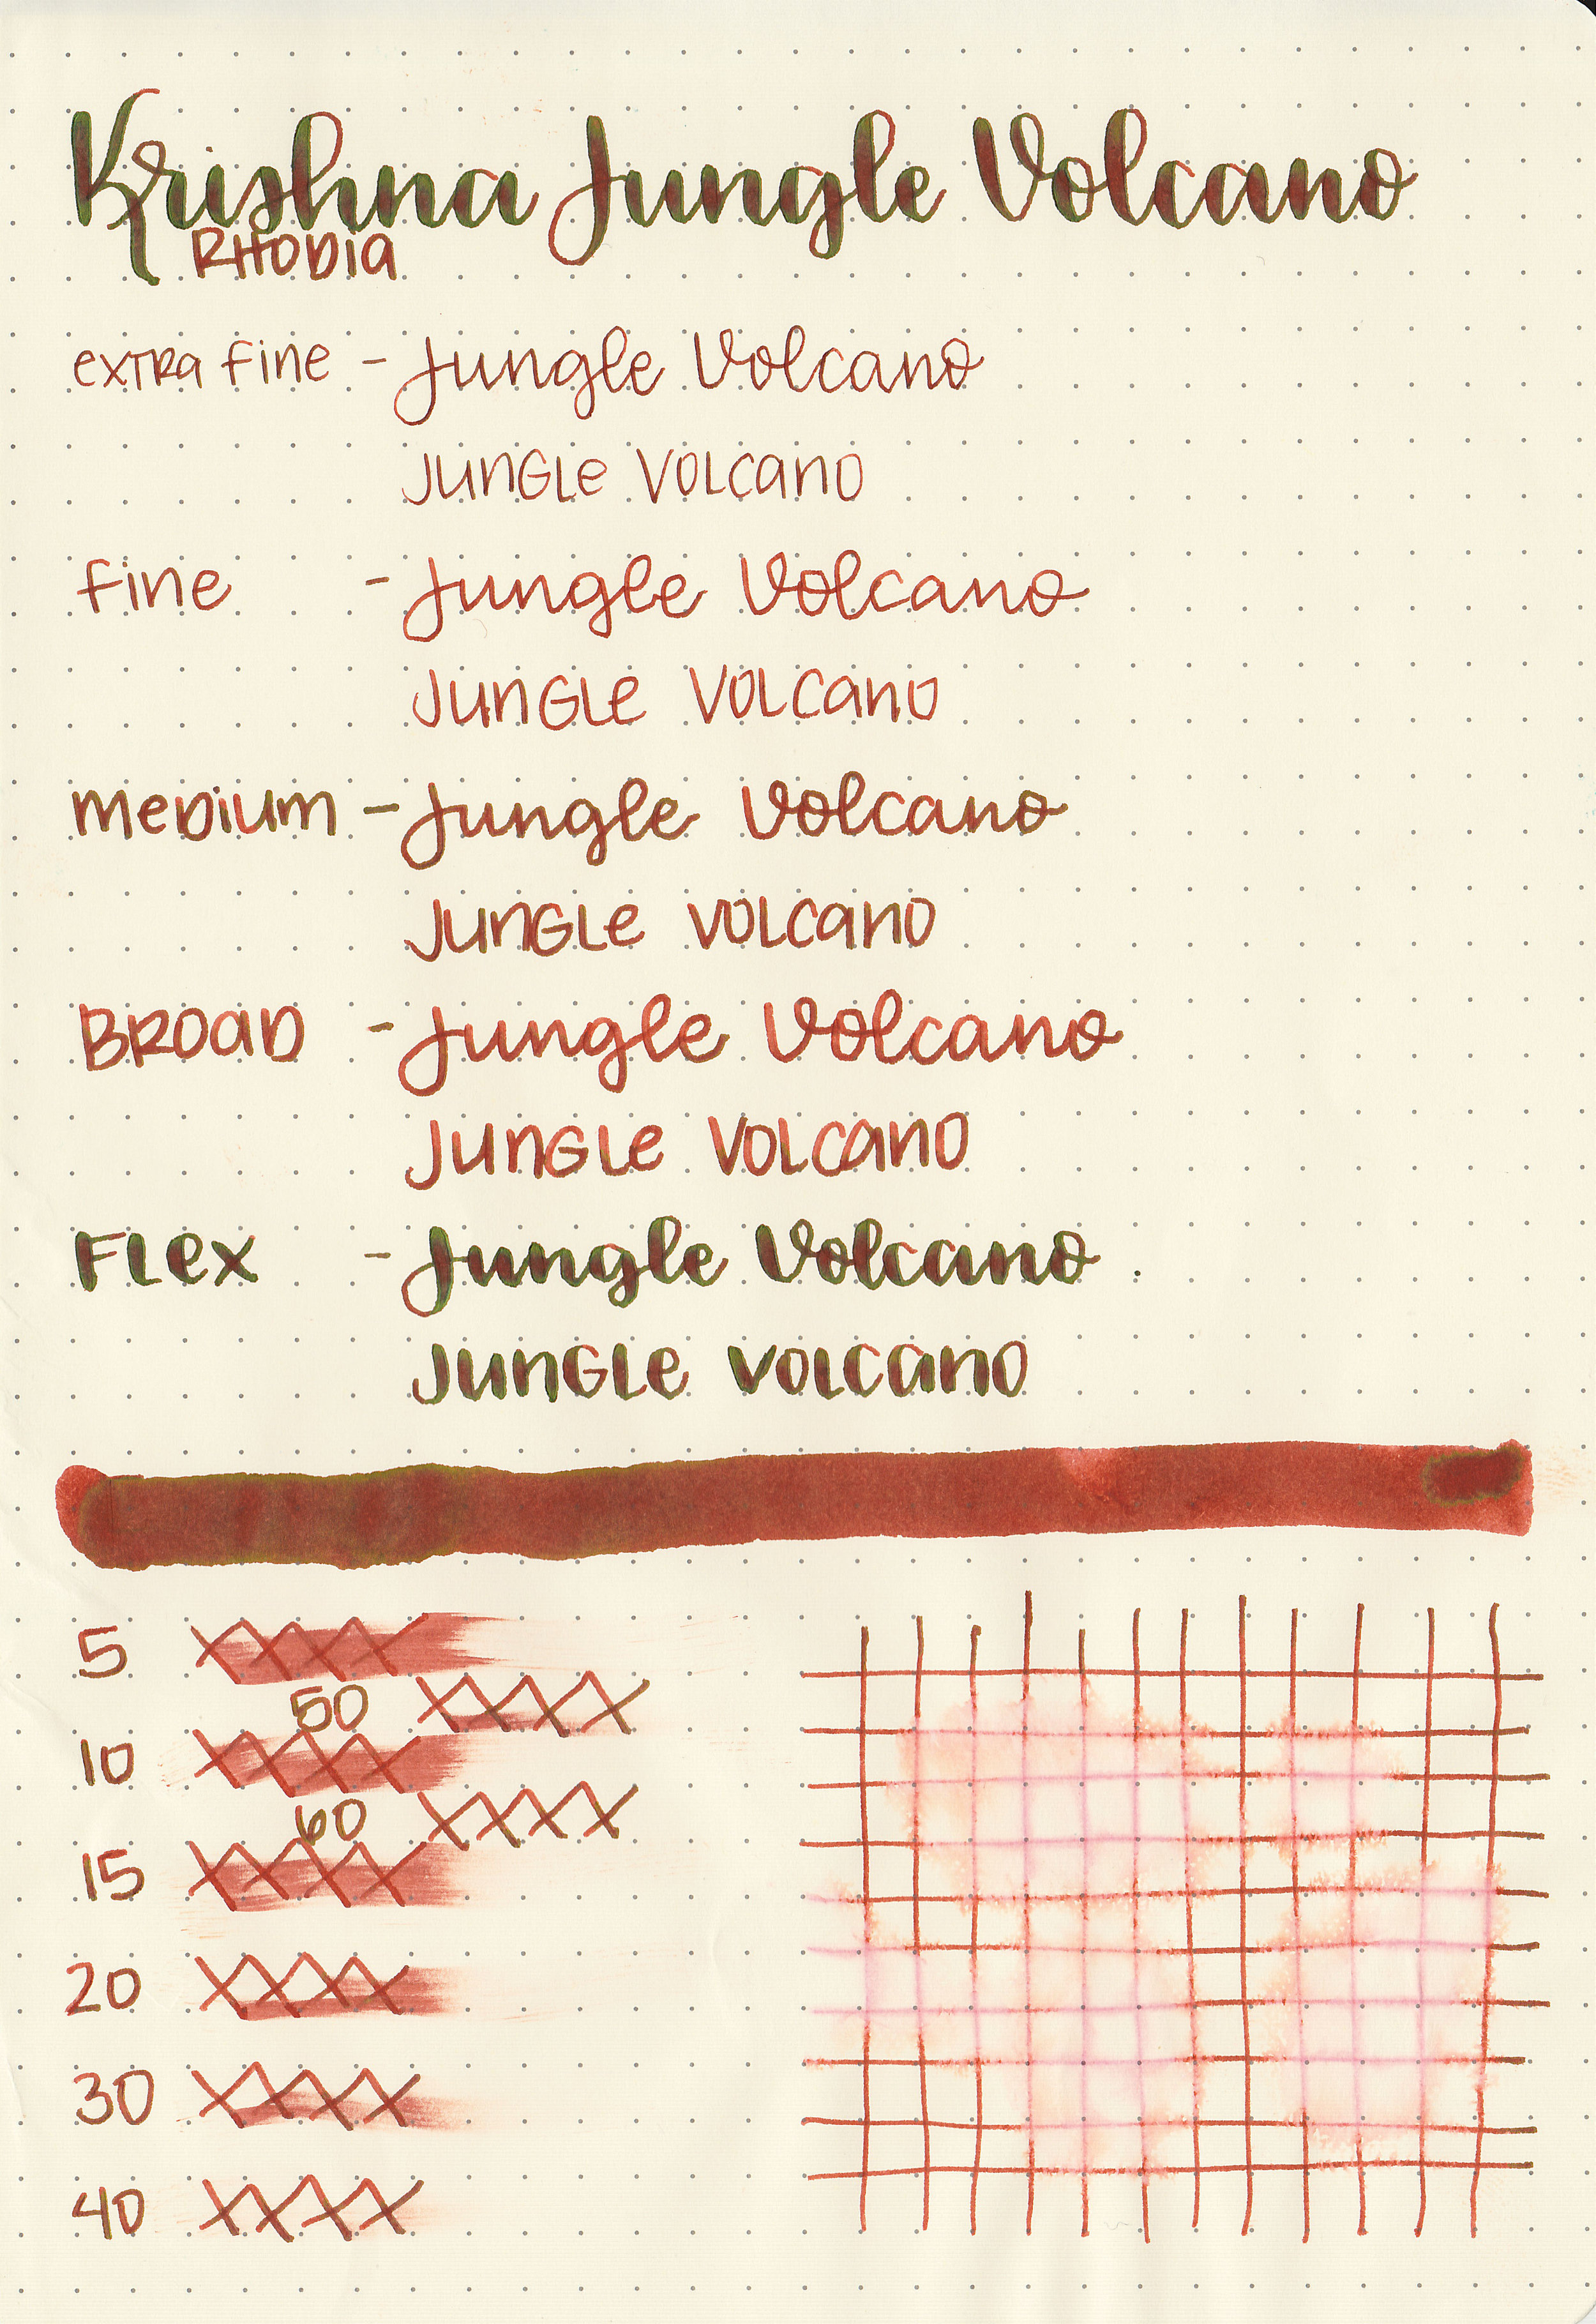 Krishna Jungle Volcano
RHODia
extRa fine - Jungle Volcano
JUnGLe VOLcanO
fine - Jungle Volcano
JUnGLe VOLcanO
meDium - Jungle Volcano
JUnGLe VOLcanO
BROaD - Jungle Volcano
JUnGLe VOLcanO
FLex - Jungle Volcano
JUnGLe VOLcanO
5 XXXX
50 XXXX
10 XXXX
60 XXXX
15 XXXX
20 XXXX
30 XXXX
40 XXXX